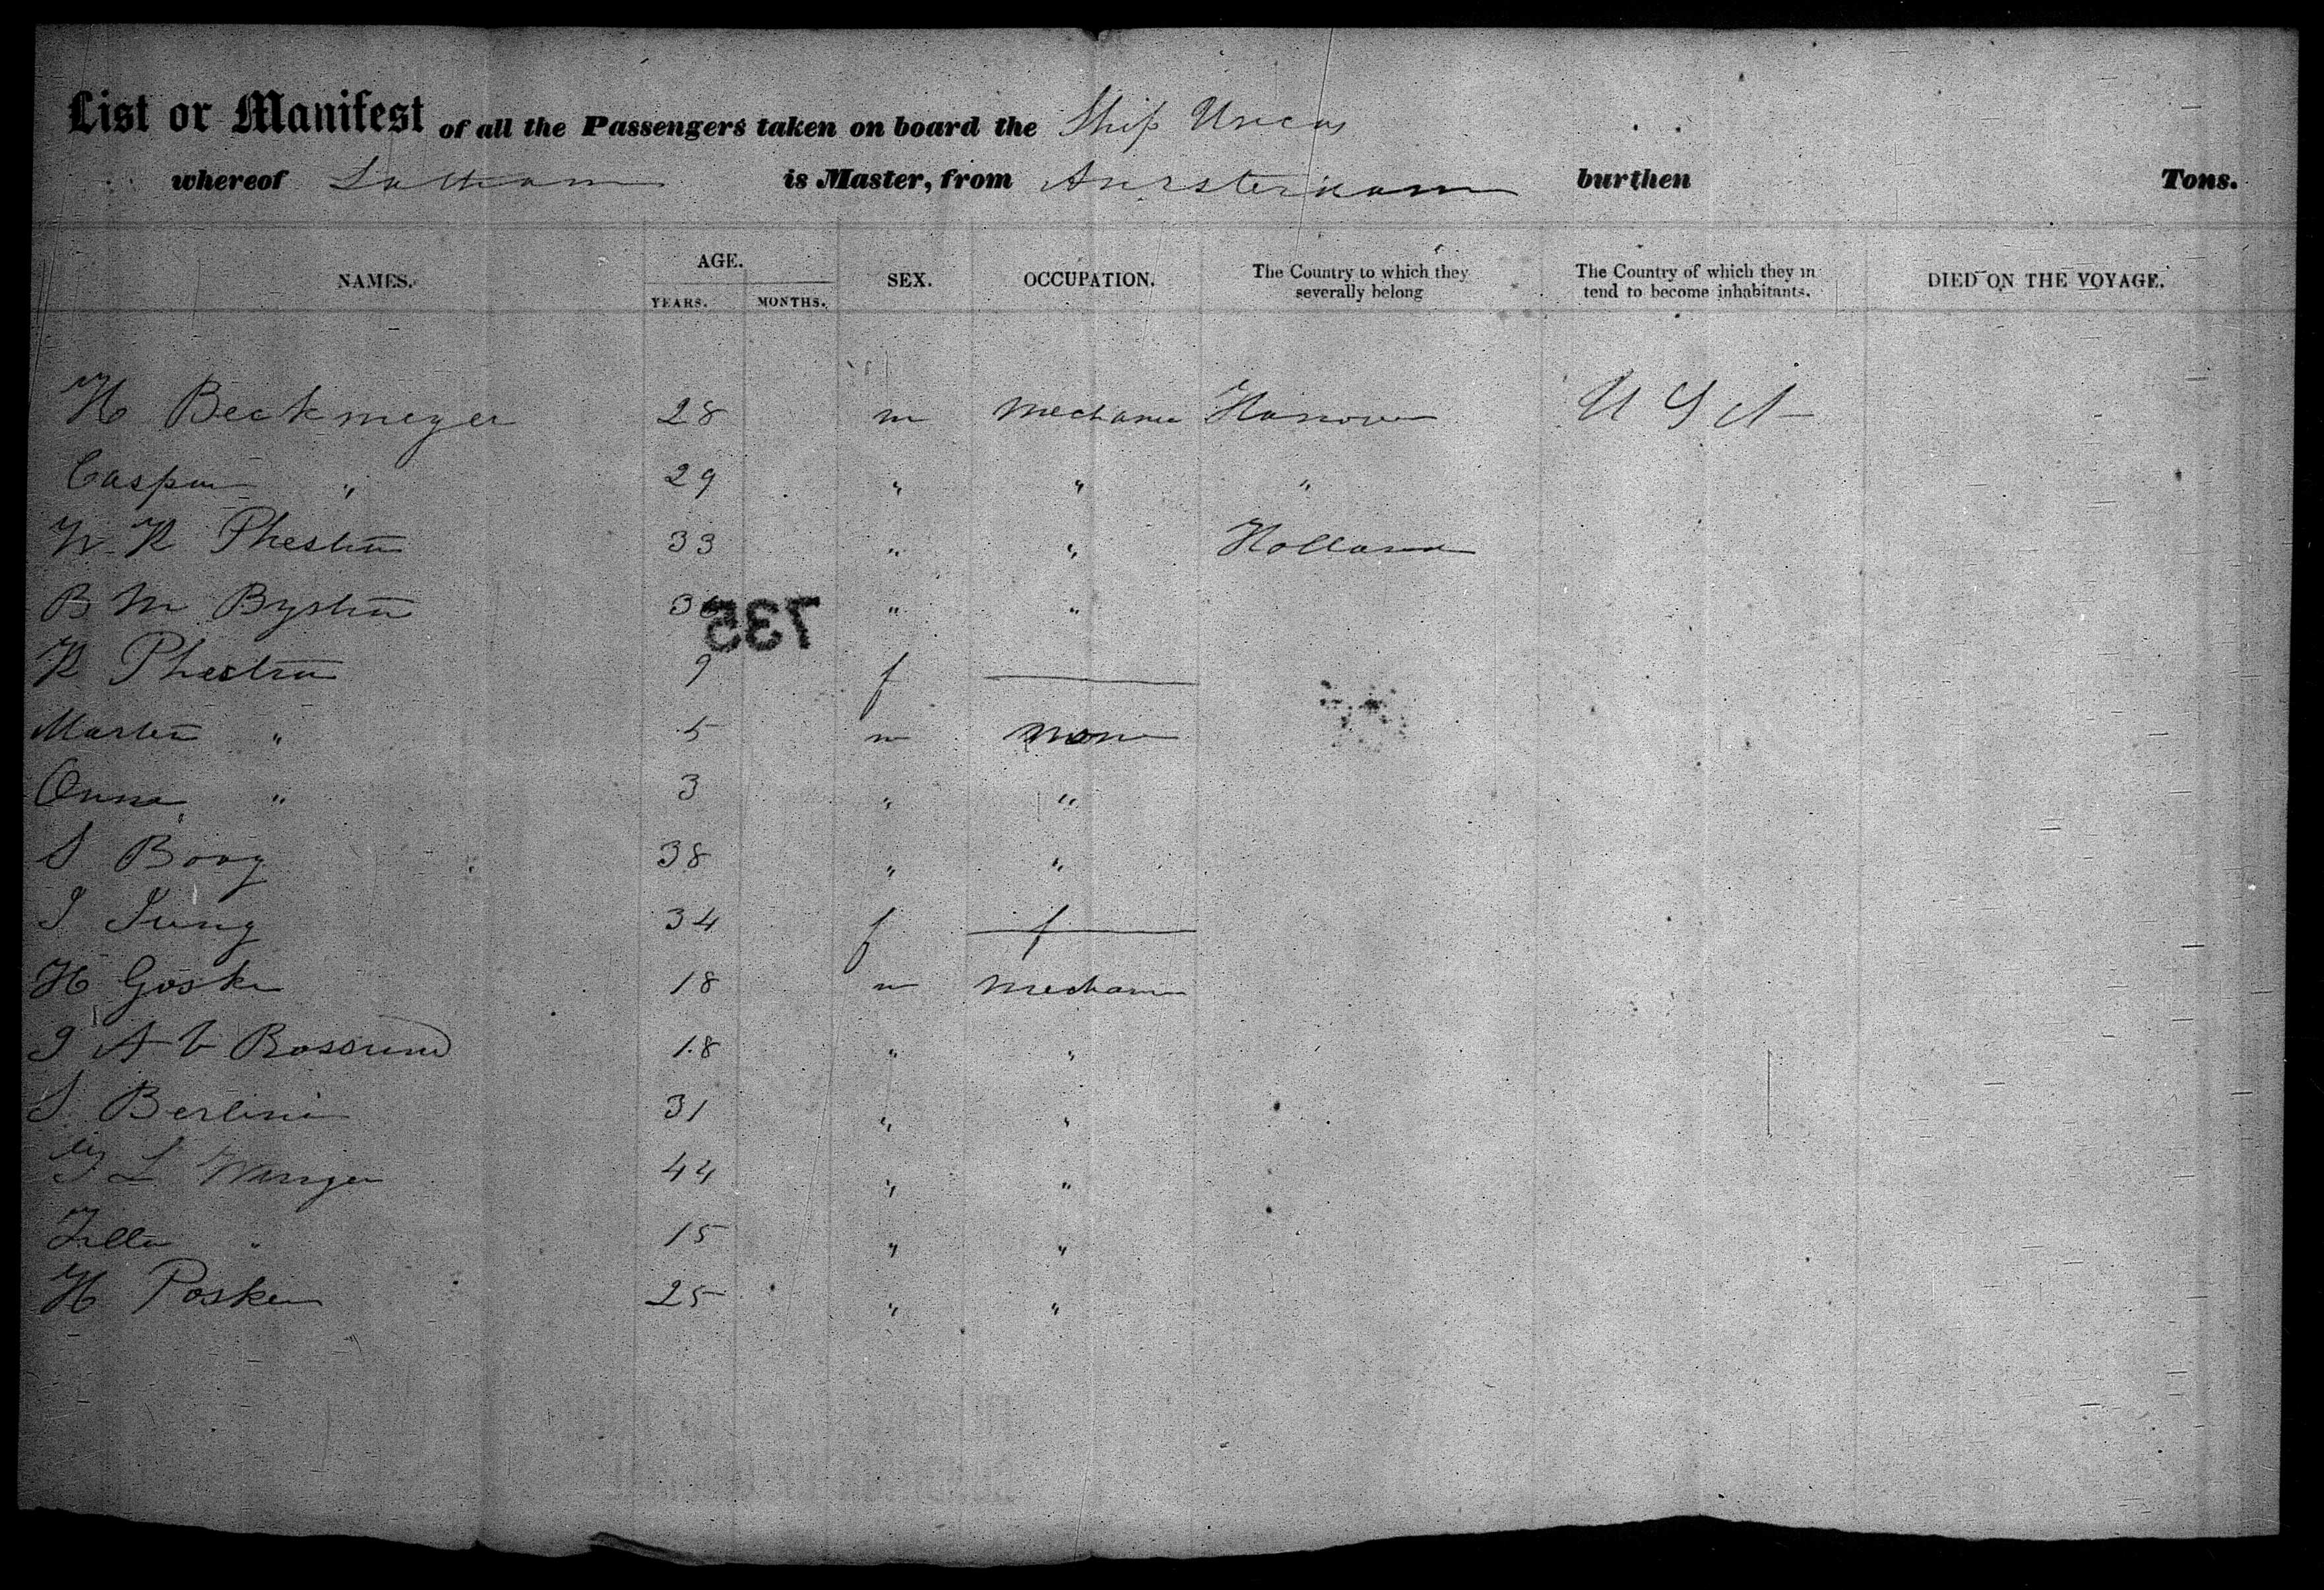 List or Manifest of all the Passengers taken on board the Ship Uncas
whereof Latham is Master, from Amsterdam burthen Tons.
NAMES. AGE. YEARS. MONTHS. SEX. OCCUPATION. The Country to which they severally belong The Country of which they in tend to become inhabitants. DIED ON THE VOYAGE.
H Beckmeyer 28 m Mechanic Hanover U S A
Caspar " 29 " " "
33 " " Holland
B M " "
735
R 9 f
Martin " 5 m None
Anna " 3 " "
S Boog 38 " "
J Jung 34 f f
H 18 m Mechanic
18 " "
S. Berlini 31 " "
44 " "
" 15 " "
H Posken 25 " "